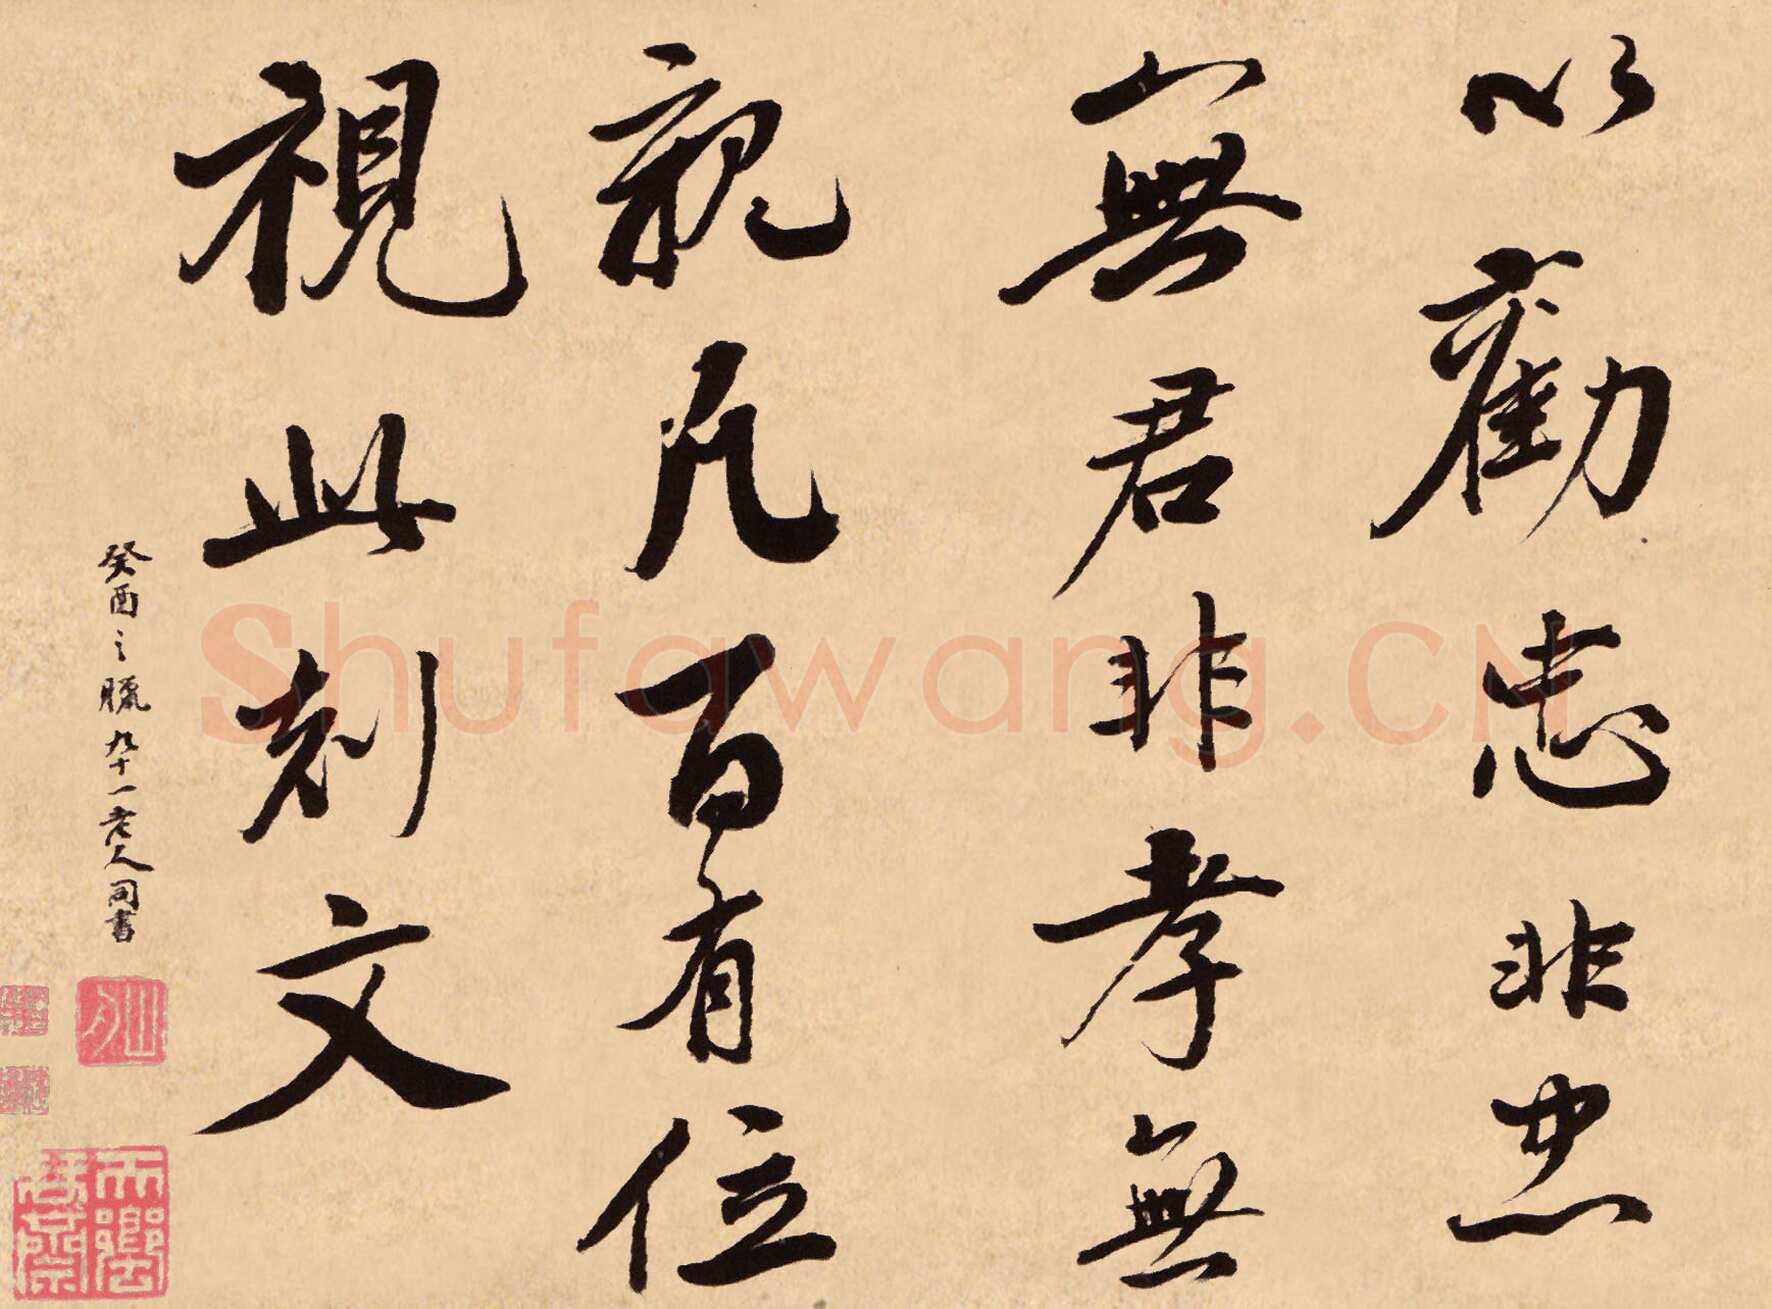 以勸忠非忠
無君非孝無
親凡百有位
視此刻文
癸酉之臘九十一老人同書
山舟
Shufawang.CN